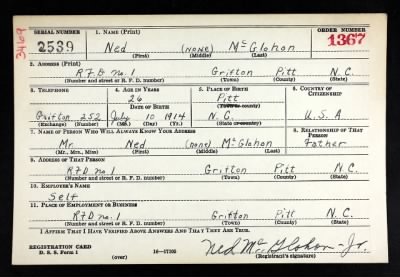 3469
SERIAL NUMBER 1. NAME (Print) ORDER NUMBER
2539 Ned (NONE) McGlohon 1367
(First) (Middle) (Last)
2. ADDRESS (Print)
RFD no. 1 Grifton Pitt N.C.
(Number and street or R. F. D. number) (Town) (County) (State)
3. TELEPHONE 4. AGE IN YEARS 5. PLACE OF BIRTH 6. COUNTRY OF CITIZENSHIP
26 Pitt
DATE OF BIRTH (Town or county)
Grifton 252 July 10 1914 N.C. U.S.A.
(Exchange) (Number) (Mo.) (Day) (Yr.) (State or country)
7. NAME OF PERSON WHO WILL ALWAYS KNOW YOUR ADDRESS 8. RELATIONSHIP OF THAT PERSON
Mr. Ned (none) McGlohon Father
(Mr., Mrs., Miss) (First) (Middle) (Last)
9. ADDRESS OF THAT PERSON
RFD no. 1 Grifton Pitt N.C.
(Number and street or R. F. D. number) (Town) (County) (State)
10. EMPLOYER'S NAME
Self
11. PLACE OF EMPLOYMENT OR BUSINESS
RFD no. 1 Grifton Pitt N.C.
(Number and street or R. F. D. number) (Town) (County) (State)
I AFFIRM THAT I HAVE VERIFIED ABOVE ANSWERS AND THAT THEY ARE TRUE.
REGISTRATION CARD
D. S. S. Form 1 16-17105 Ned McGlohon-Jr.
(over) (Registrant's signature)